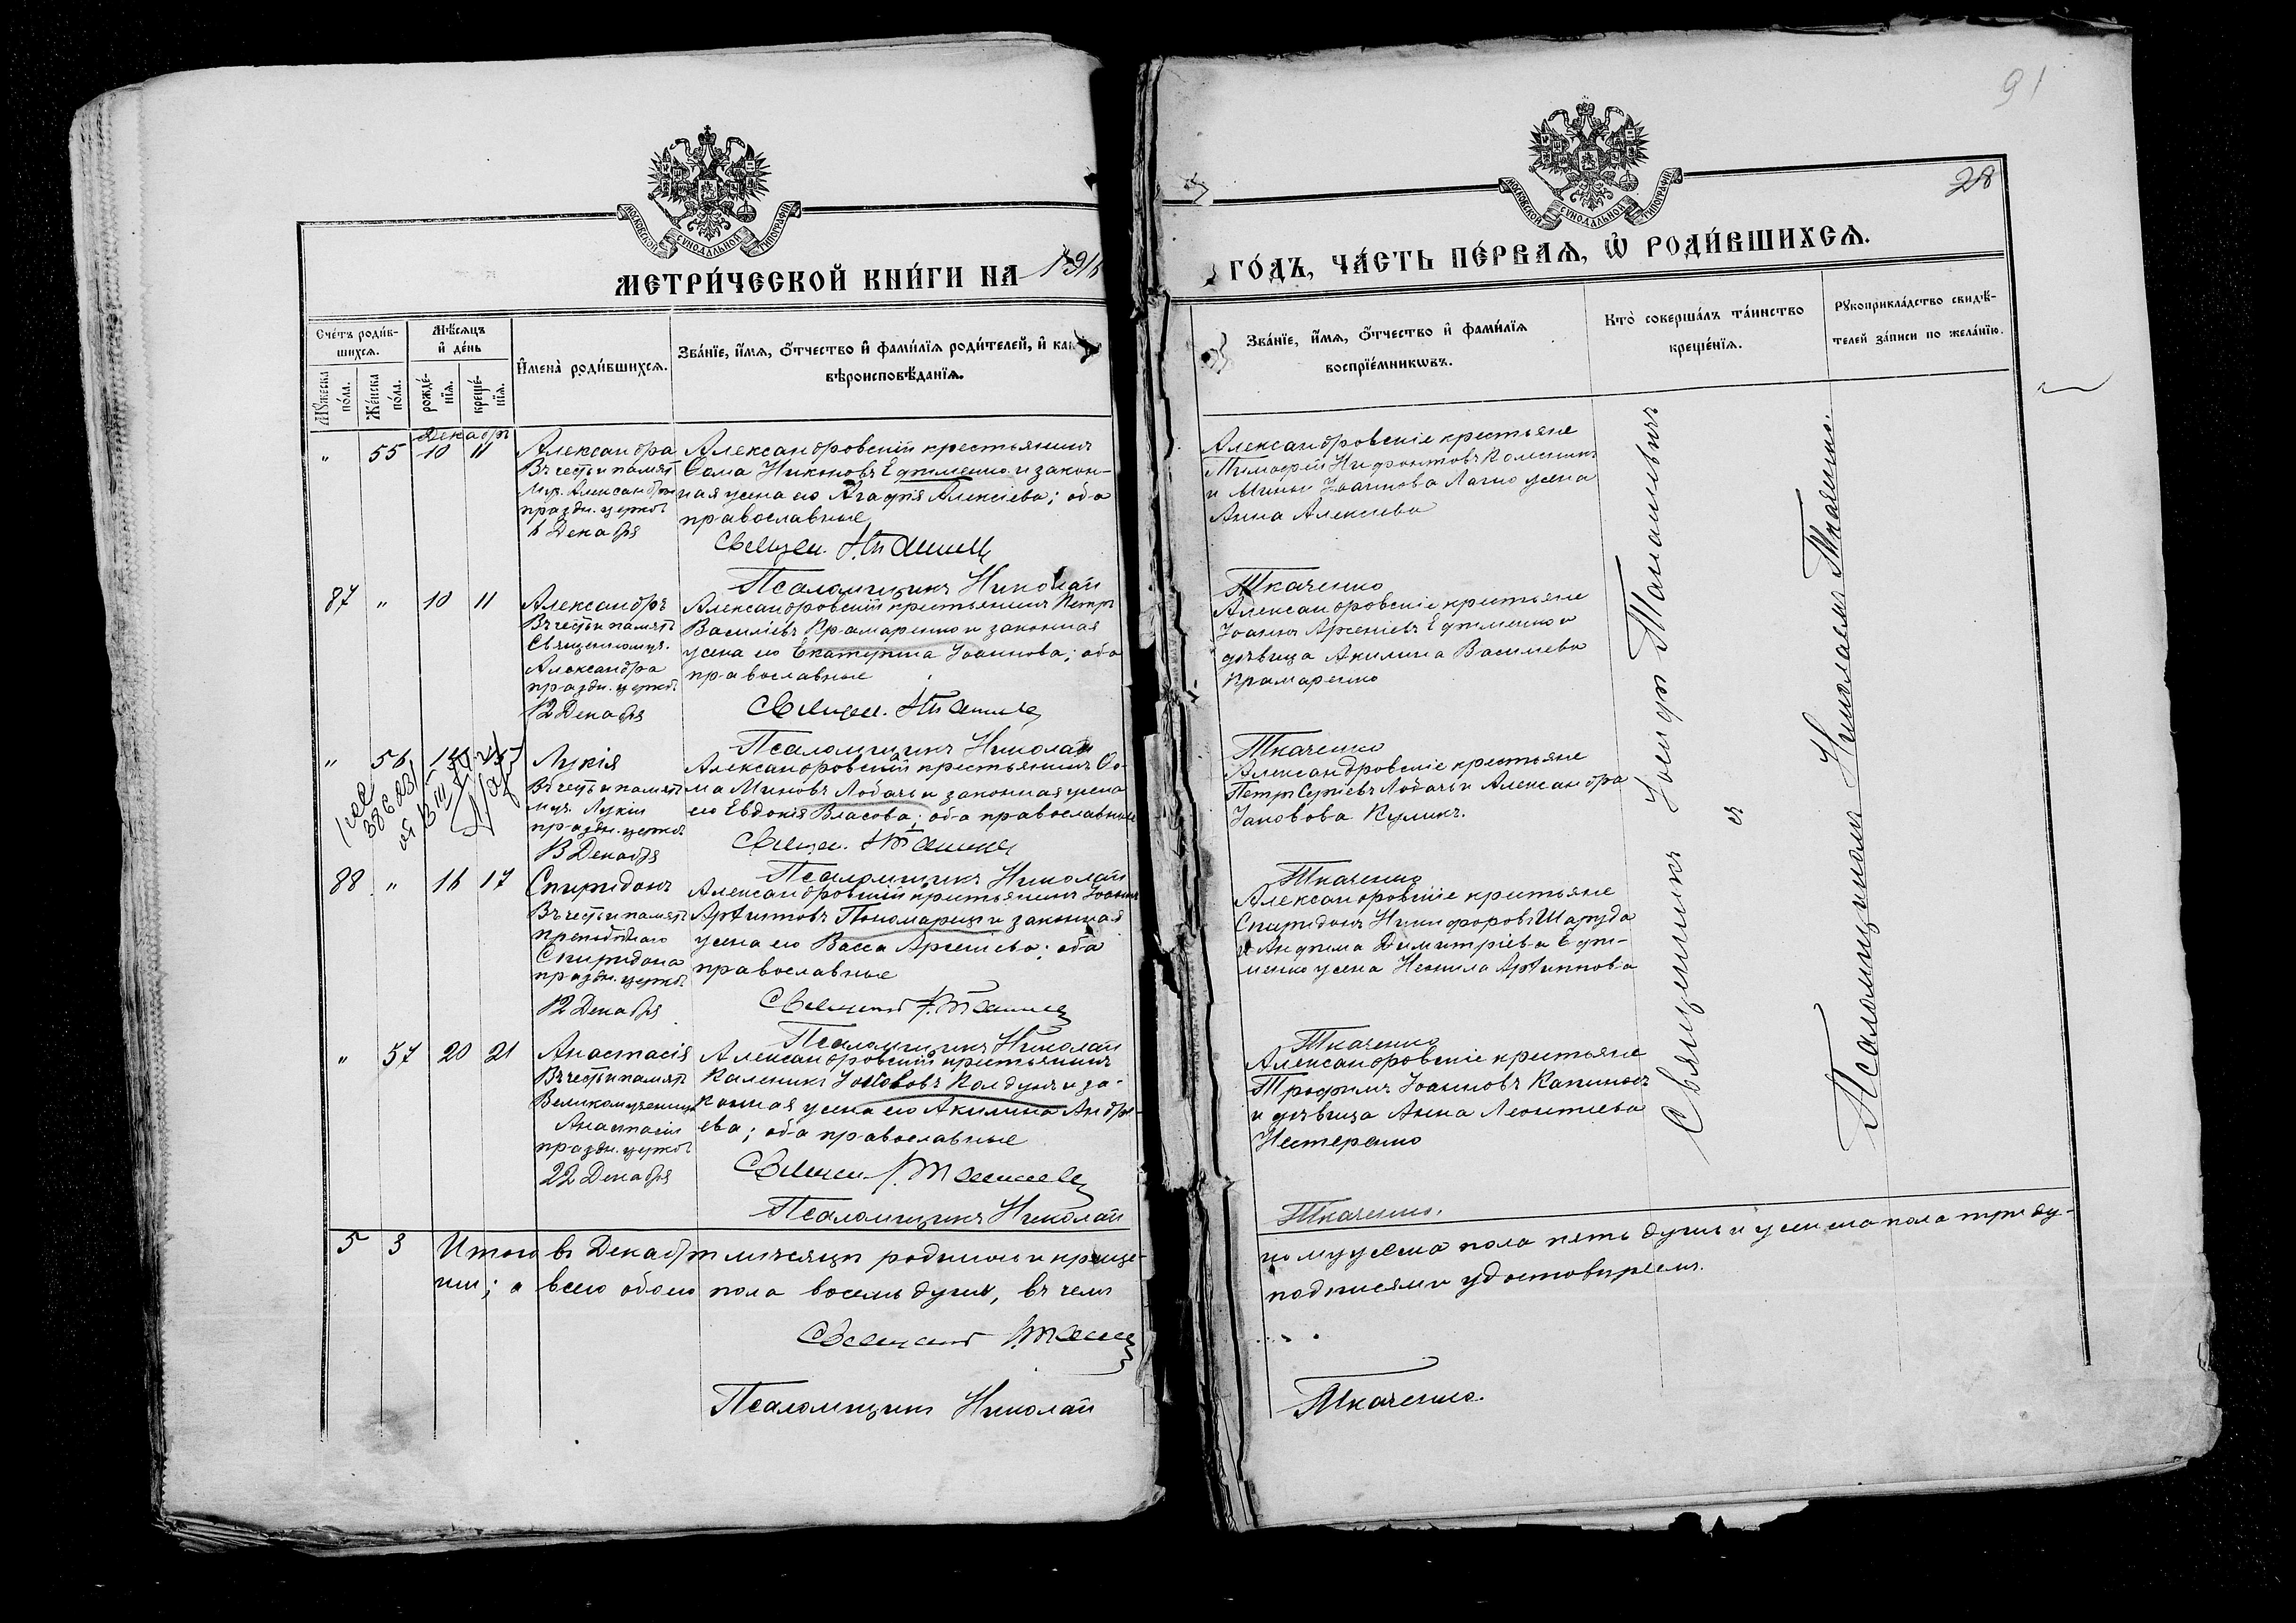 91
28
МОСКОВСКОЙ СѴНОДАЛЬНОЙ ТИПОГРАФІИ
МОСКОВСКОЙ СѴНОДАЛЬНОЙ ТИПОГРАФІИ
МЕТРИ́ЧЕСКОЙ КНИ́ГИ НА 191
ГО́ДЪ, ЧА́СТЬ ПЕ́РВАЯ, Ѡ҆ РОДИ́ВШИХСЯ.
Сче́тъ роди́в-
шихся.
Мꙋ́жеска по́ла.
Же́нска по́ла.
Мѣ́сяцъ и҆ де́нь
рожде́-
нїя.
креще́-
нїя.
И҆мена̀ роди́вшихся.
Зва́нїе, и҆́мя, ѻ҆́тчество и҆ фами́лїя роди́телей, и҆ как
вѣроисповѣ́данїя.
Зва́нїе, и҆́мя, ѻ҆́тчество и҆ фами́лїя
воспрїе́мникѡвъ.
Кто̀ соверша́лъ та́инство
креще́нїя.
Рꙋкоприкла́дство свидѣ́-
телей за́писи по жела́нїю.
Декабрь
" 55 10 11
Александра
Въ честь и память
муч. Александры
праздн. церков
6 Декабря
Александровскій крестьянинъ
Сава Никоновъ Ефименко и закон-
ная жена его Агафія Алексіева; оба
православные
Священ. І. Танашев
Псаломщикъ Николай
Александровскіе крестьяне
Тимофей Нифонтовъ Каленикъ
и Мины Іоаннова Лагно жена
Анна Алексіева
Ткаченко
87 " 10 11
Александръ
Въ честь и память
Священномуч.
Александра
праздн. церков
12 Декабря
Александровскій крестьянинъ Петръ
Василіевъ Крамаренко и законная
жена его Екатерина Іоаннова; оба
православные
Священ.
Псаломщикъ Николай
Александровскіе крестьяне
Іоаннъ Арсеніевъ Ефименко и
дѣвица Акилина Василіева
Крамаренко
Ткаченко
" 56
Лукія
Въ честь и память
муч. Лукіи
праздн. церков
13 Декабря
Александровскій крестьянинъ Ѳо-
ма Миновъ Лобачъ и законная жена
его Евдокія Власова; оба православные
Священ.
Псаломщикъ Николай
Александровскіе крестьяне
Петръ Сергіевъ Лобачъ и Александра
Іаковова Куликъ.
Ткаченко
88 " 16 17
Спиридонъ
Въ честь и память
преподобнаго
Спиридона
праздн. церков
12 Декабря
Александровскій крестьянинъ Іоаннъ
Архиповъ Пономарецъ и законная
жена его Васса Арсеніева; оба
православные
Священникъ
Псаломщикъ Николай
Александровскіе крестьяне
Спиридонъ Никифоровъ Шаруда
и Анфима Димитріева Ефи-
менко жена Неонила Архиппова
Ткаченко
" 57 20 21
Анастасія
Въ честь и память
Великомученицы
Анастасіи
праздн. церков
22 Декабря
Александровскій крестьянинъ
Каленикъ Іаковъ Колдунъ и за-
конная жена его Акилина Андре-
ева; оба православные
Священ.
Псаломщикъ Николай
Александровскіе крестьяне
Трофимъ Іоанновъ Капиносъ
и дѣвица Анна Леонтіева
Нестеренко
Ткаченко.
Священникъ Іосифъ
и
Псаломщикомъ Николаемъ Ткаченко.
5 3 Итого въ Декабрѣ мѣсяцѣ родилось и креще-
но мужеска пола пять душъ и женска пола три ду-
ши; а всего обоего пола восемь душъ, въ чемъ
подписями удостовѣряемъ.
Священникъ
Псаломщикъ Николай
Ткаченко.